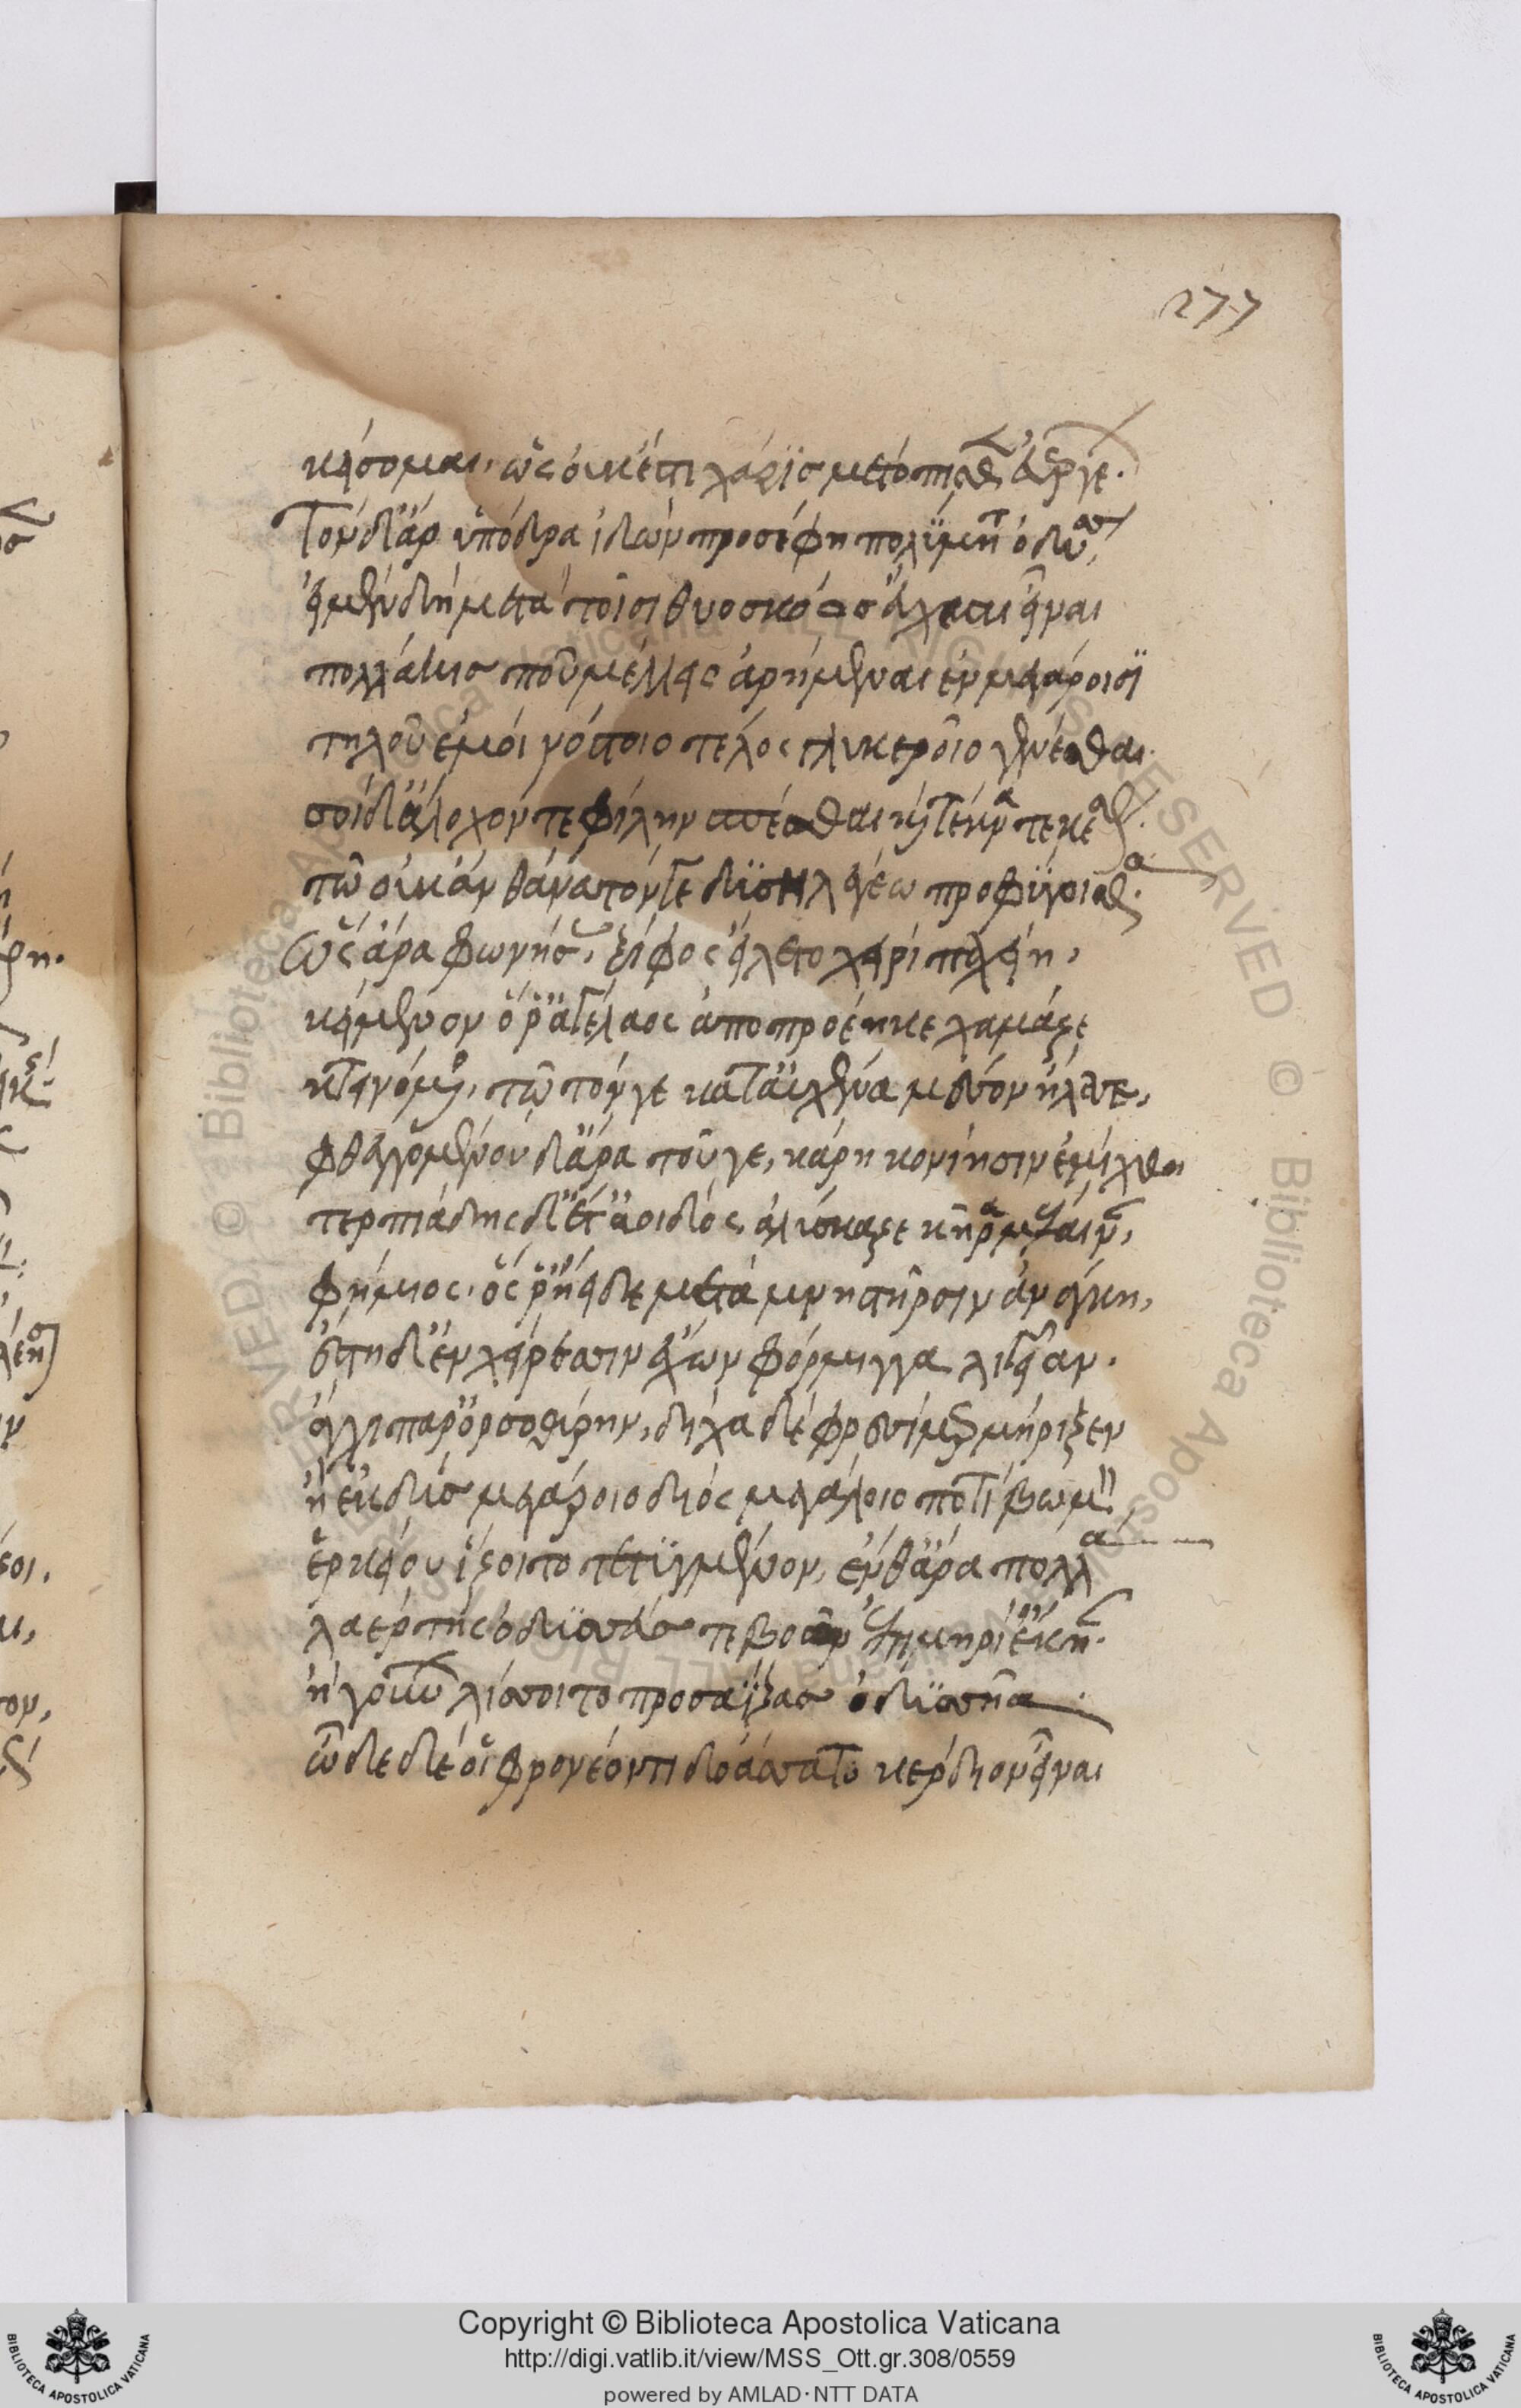 277
κείσομαι, ὡς οὐκ ἔστι χάρις μετόπισθ' εὐεργέ.
Τὸν δ' ἄρ ὑπόδρα ἰδὼν προσέφη πολύμητ ὀδυσ
εἰ μὲν δὴ μετὰ τοῖσι θυοσκόος εὔχεαι εἶναι
πολλάκις που μέλλεις ἀρήμεναι ἐν μεγάροισι
τηλοῦ ἐμοὶ νόστοιο τέλος γλυκεροῖο γενέσθαι.
σοὶ δ' ἄλοχόν τε φίλην σπέσθαι καὶ τέκνα τεκέσθ.
τῶ οὐκ ἂν θάνατόν γε δυσηλεγέα προφύγοισθα.
ὣς ἄρα φωνήσας, ξίφος εἵλετο χειρὶ παχείη,
κείμενον ὅ ῥ' ἀγέλαος ἀποπροέηκε χαμάζε
κτεινόμενος, τῶ τόν γε κατ' αὐχένα μέσσον ἤλασε,
φθεγγομένου δ' ἄρα τοῦγε, κάρη κονίησιν ἐμίχθη
τερπιάδης δ' ἔτ' ἀοιδὸς ἀλύσκαζε κῆρα μέλαιν,
φήμιος. ὅς ῥ' ἤειδε μετὰ μνηστῆρσιν ἀνάγκη,
ἔστη δ' ἐν χείρεσσιν ἔχων φόρμιγγα λιγεῖαν.
ἄγχι παρ' ὀρσοθύρην, δίχα δὲ φρεσὶ μερμήριξεν
ἢ ἐκδὺς μεγάροιο διὸς μεγάλοιο ποτὶ βωμὸν
ἑρκείου ἵζοιτο τετυγμένον, ἔνθ' ἄρα πολλὰ
λαέρτης ὀδυσσεύς τε βοῶν ἐπὶ μηρί' ἔκηαν.
ἢ γούνων λίσσοιτο προσαΐξας ὀδυσσῆα.
ὧδε δέ οἱ φρονέοντι δοάσσατο κέρδιον εἶναι
Copyright © Biblioteca Apostolica Vaticana
http://digi.vatlib.it/view/MSS_Ott.gr.308/0559
powered by AMLAD·NTT DATA